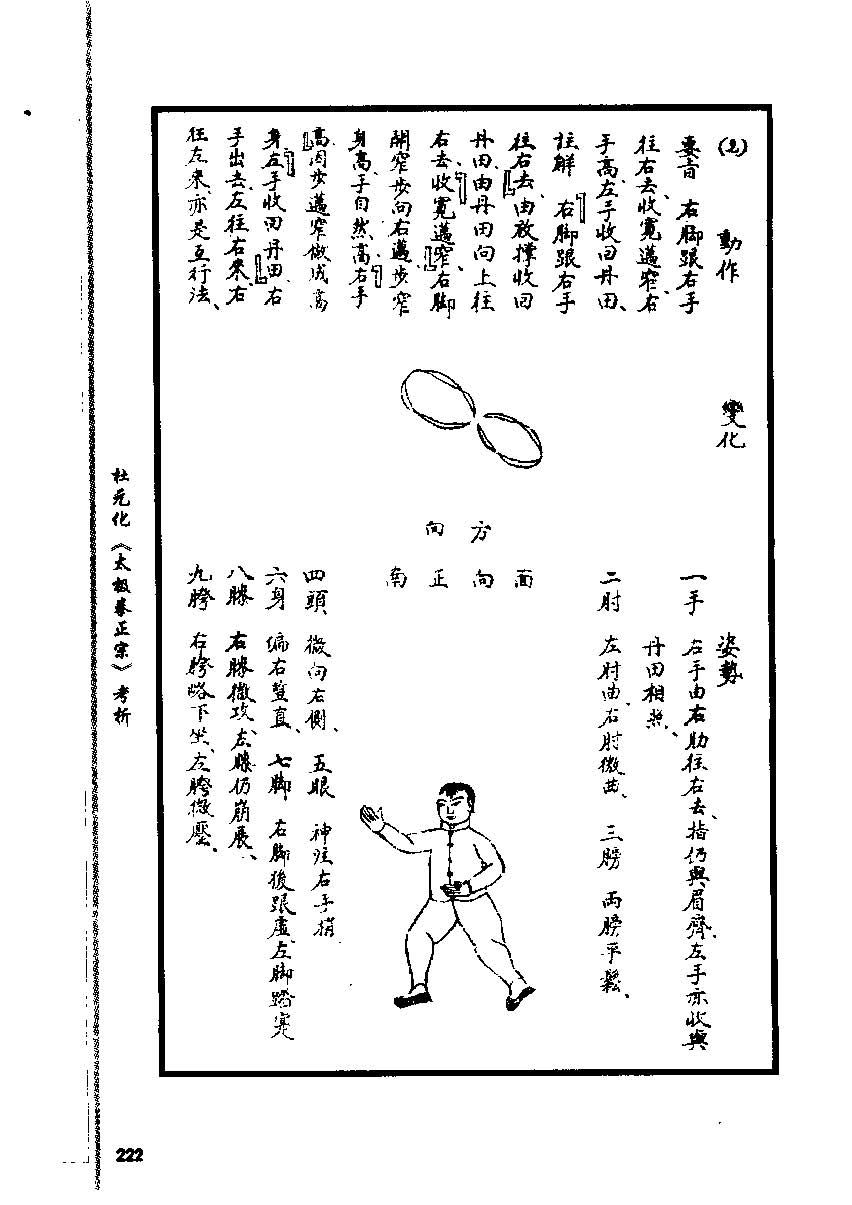 (2) 動作 變化 姿勢
要言 右脚跟右手
往右去、收寬邁窄、右
手高、左手收回丹田、
註解 「右脚跟右手
往右去」由放撑收回
丹田、由丹田向上往
右去、「收寬邁窄」右脚
開窄步向右邁、步窄
身高、手自然高、「右手
高」因步邁窄做成高
身「左手收回丹田」右
手出去左往右来、右
往左来、亦是互行法、
方向
面向正南
一手 右手由右肋往右去、指仍與眉齊、左手亦收與
丹田相照、
二肘 左肘曲、右肘微曲、 三膀 兩膀平鬆、
四頭 微向右側、 五眼 神注右手梢、
六身 偏右豎直、 七脚 右脚後跟虛、左脚踏寔
八膝 右膝微攻、左膝仍崩展、
九胯 右胯略下坐、左胯微壓、
杜元化《太极拳正宗》考析
222